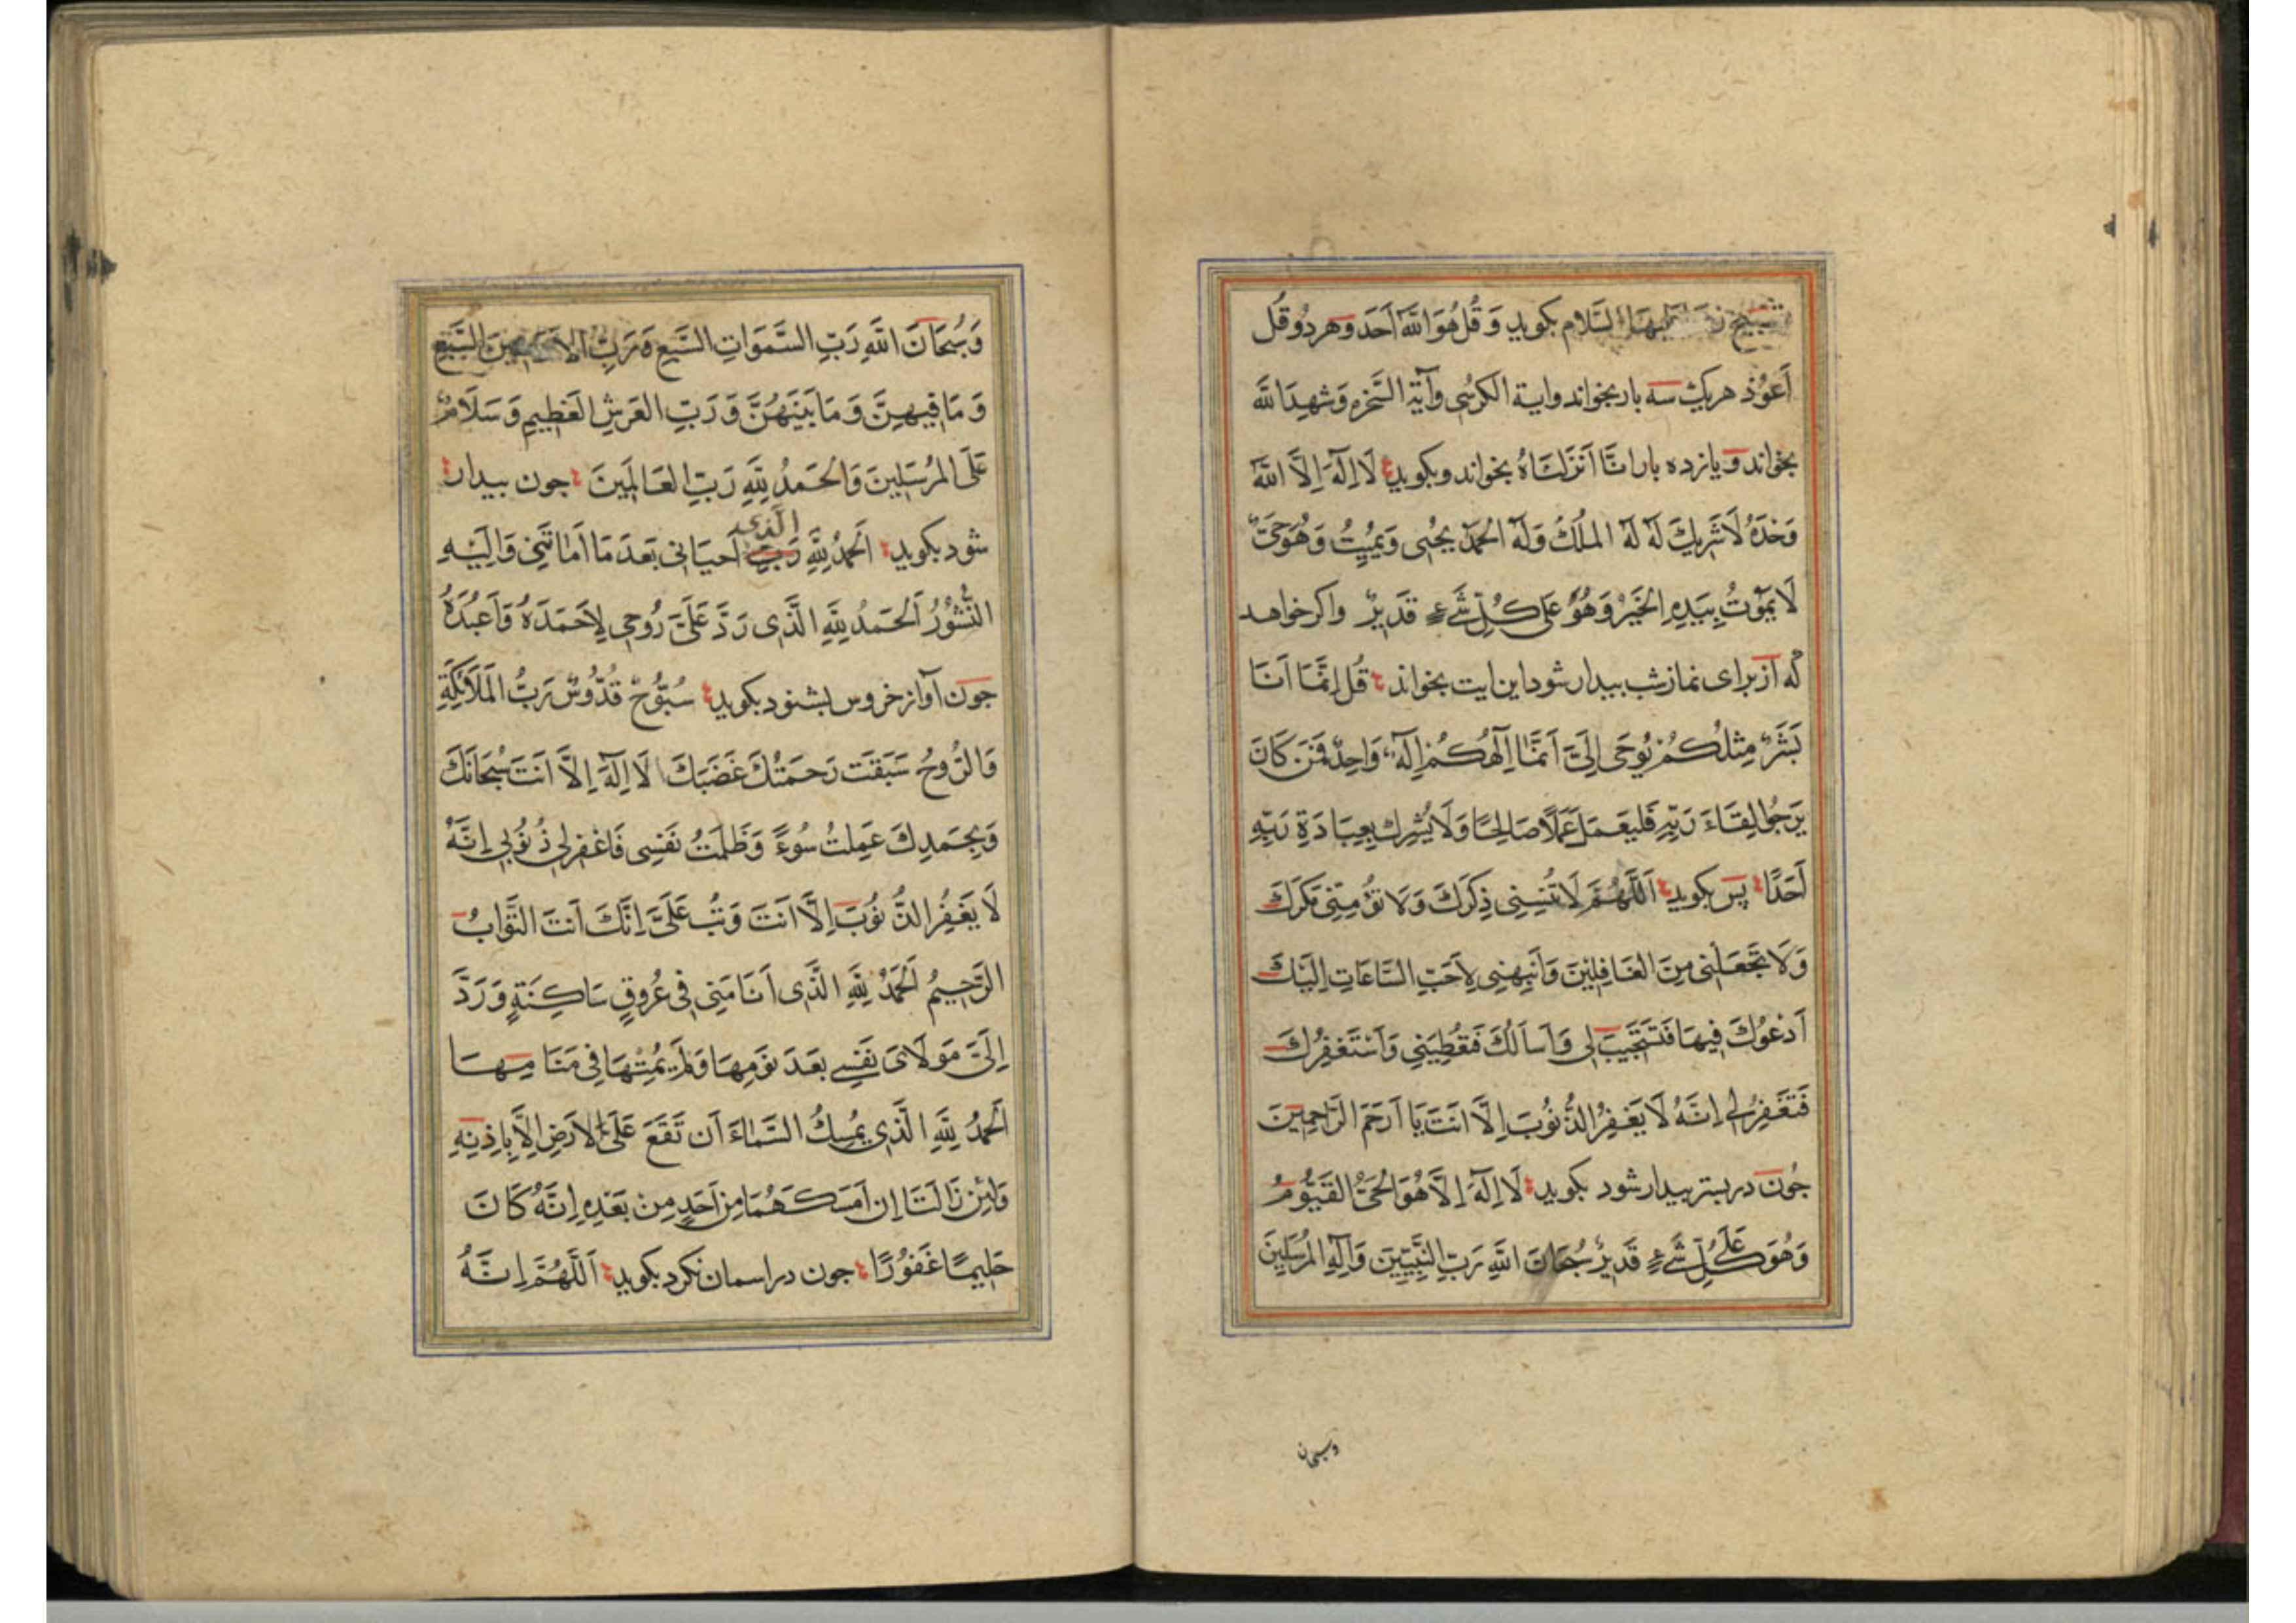 تسبیح السَّلام بکوید وَ قُل هُوَ اللَّهُ اَحَد وهر دو قُل
اَعُوذ هریک سه بار بخواند وایة الکرسی وآیة السَّخره وَشَهِدَاللَّه
بخواند و یازده بار انَّا اَنزَلنَاهُ بخواند وبکوید لَا اِلَهَ اِلَّا اللَّهُ
وَحْدَهُ لَا شَرِیكَ لَهُ لَهُ المُلكُ وَلَهُ الحَمدُ یُحیِی وَیُمِیتُ وَهُوَ حَیٌّ
لَا یَمُوتُ بِیَدِهِ الخَیرُ وَهُوَ عَلَی کُلِّ شَیءٍ قَدیرٌ واکر خواهد
که از برای نماز شب بیدار شود این ایت بخواند قُل اِنَّمَا اَنَا
بَشَرٌ مِثلُکُم یُوحَی اِلَیَّ اَنَّمَا اِلَهُکُم اِلَهٌ وَاحِدٌ فَمَن کَانَ
یَرجُوا لِقَاءَ رَبِّهِ فَلیَعمَل عَمَلًا صَالِحًا وَلَا یُشرِك بِعِبَادَةِ رَبِّهِ
اَحَدًا پس بکوید اَللَّهُمَّ لَا تُنسِنِی ذِکرَكَ وَلَا تُؤمِنِّی مَکرَكَ
وَلَا تَجعَلنِی مِنَ الغَافِلِینَ وَاَنبِهنِی لِاَحَبِّ السَّاعَاتِ اِلَیكَ
اَدعُوكَ فِیهَا فَتَستَجِیبَ لِی وَاَساَلُكَ فَتُعطِیَنِی وَاَستَغفِرُكَ
فَتَغفِرُ لِی اِنَّهُ لَا یَغفِرُ الذُّنُوبَ اِلَّا اَنتَ یَا اَرحَمَ الرَّاحِمِینَ
جون در بستر بیدار شود بکوید لَا اِلَهَ اِلَّا هُوَ الحَیُّ القَیُّومُ
وَهُوَ عَلَی کُلِّ شَیءٍ قَدیرٌ سُبحَانَ اللَّهِ رَبِّ النَّبِیِّینَ وَاِلَهِ المُرسَلِینَ
وسبحان
وَسُبحَانَ اللَّهِ رَبِّ السَّمَوَاتِ السَّبعِ وَرَبِّ الاَرَضِینَ السَّبعِ
وَمَا فِیهِنَّ وَمَا بَینَهُنَّ وَرَبِّ العَرشِ العَظِیمِ وَسَلَامٌ
عَلَی المُرسَلِینَ وَالحَمدُ لِلَّهِ رَبِّ العَالَمِینَ جون بیدار
شود بکوید اَلحَمدُ لِلَّهِ رَبِّ الَّذی اَحیَانِی بَعدَ مَا اَمَاتَنِی وَاِلَیهِ
النُّشُورُ اَلحَمدُ لِلَّهِ الَّذِی رَدَّ عَلَیَّ رُوحِی لِاَحمَدَهُ وَاَعبُدَهُ
جون آواز خروس بشنود بکوید سُبُّوحٌ قُدُّوسٌ رَبُّ المَلَائِکَةِ
وَالرُّوحُ سَبَقَت رَحمَتُكَ غَضَبَكَ لَا اِلَهَ اِلَّا اَنتَ سُبحَانَكَ
وَبِحَمدِكَ عَمِلتُ سُوءً وَظَلَمتُ نَفسِی فَاغفِر لِی ذُنُوبِی اِنَّهُ
لَا یَغفِرُ الذُّنُوبَ اِلَّا اَنتَ وَتُب عَلَیَّ اِنَّكَ اَنتَ التَّوَّابُ
الرَّحِیمُ اَلحَمدُ لِلَّهِ الَّذِی اَنَامَنِی فِی عُرُوقٍ سَاکِنَةٍ وَرَدَّ
اِلَیَّ مَولَایَ نَفسِی بَعدَ نَومِهَا وَلَم یُمِتهَا فِی مَنَامِهَا
اَلحَمدُ لِلَّهِ الَّذِی یُمسِكُ السَّمَاءَ اَن تَقَعَ عَلَی الاَرضِ اِلَّا بِاِذنِهِ
وَلَئِن زَالَتَا اِن اَمسَکَهُمَا مِن اَحَدٍ مِن بَعدِهِ اِنَّهُ کَانَ
حَلِیمًا غَفُورًا جون در اسمان نکرد بکوید اَللَّهُمَّ اِنَّهُ